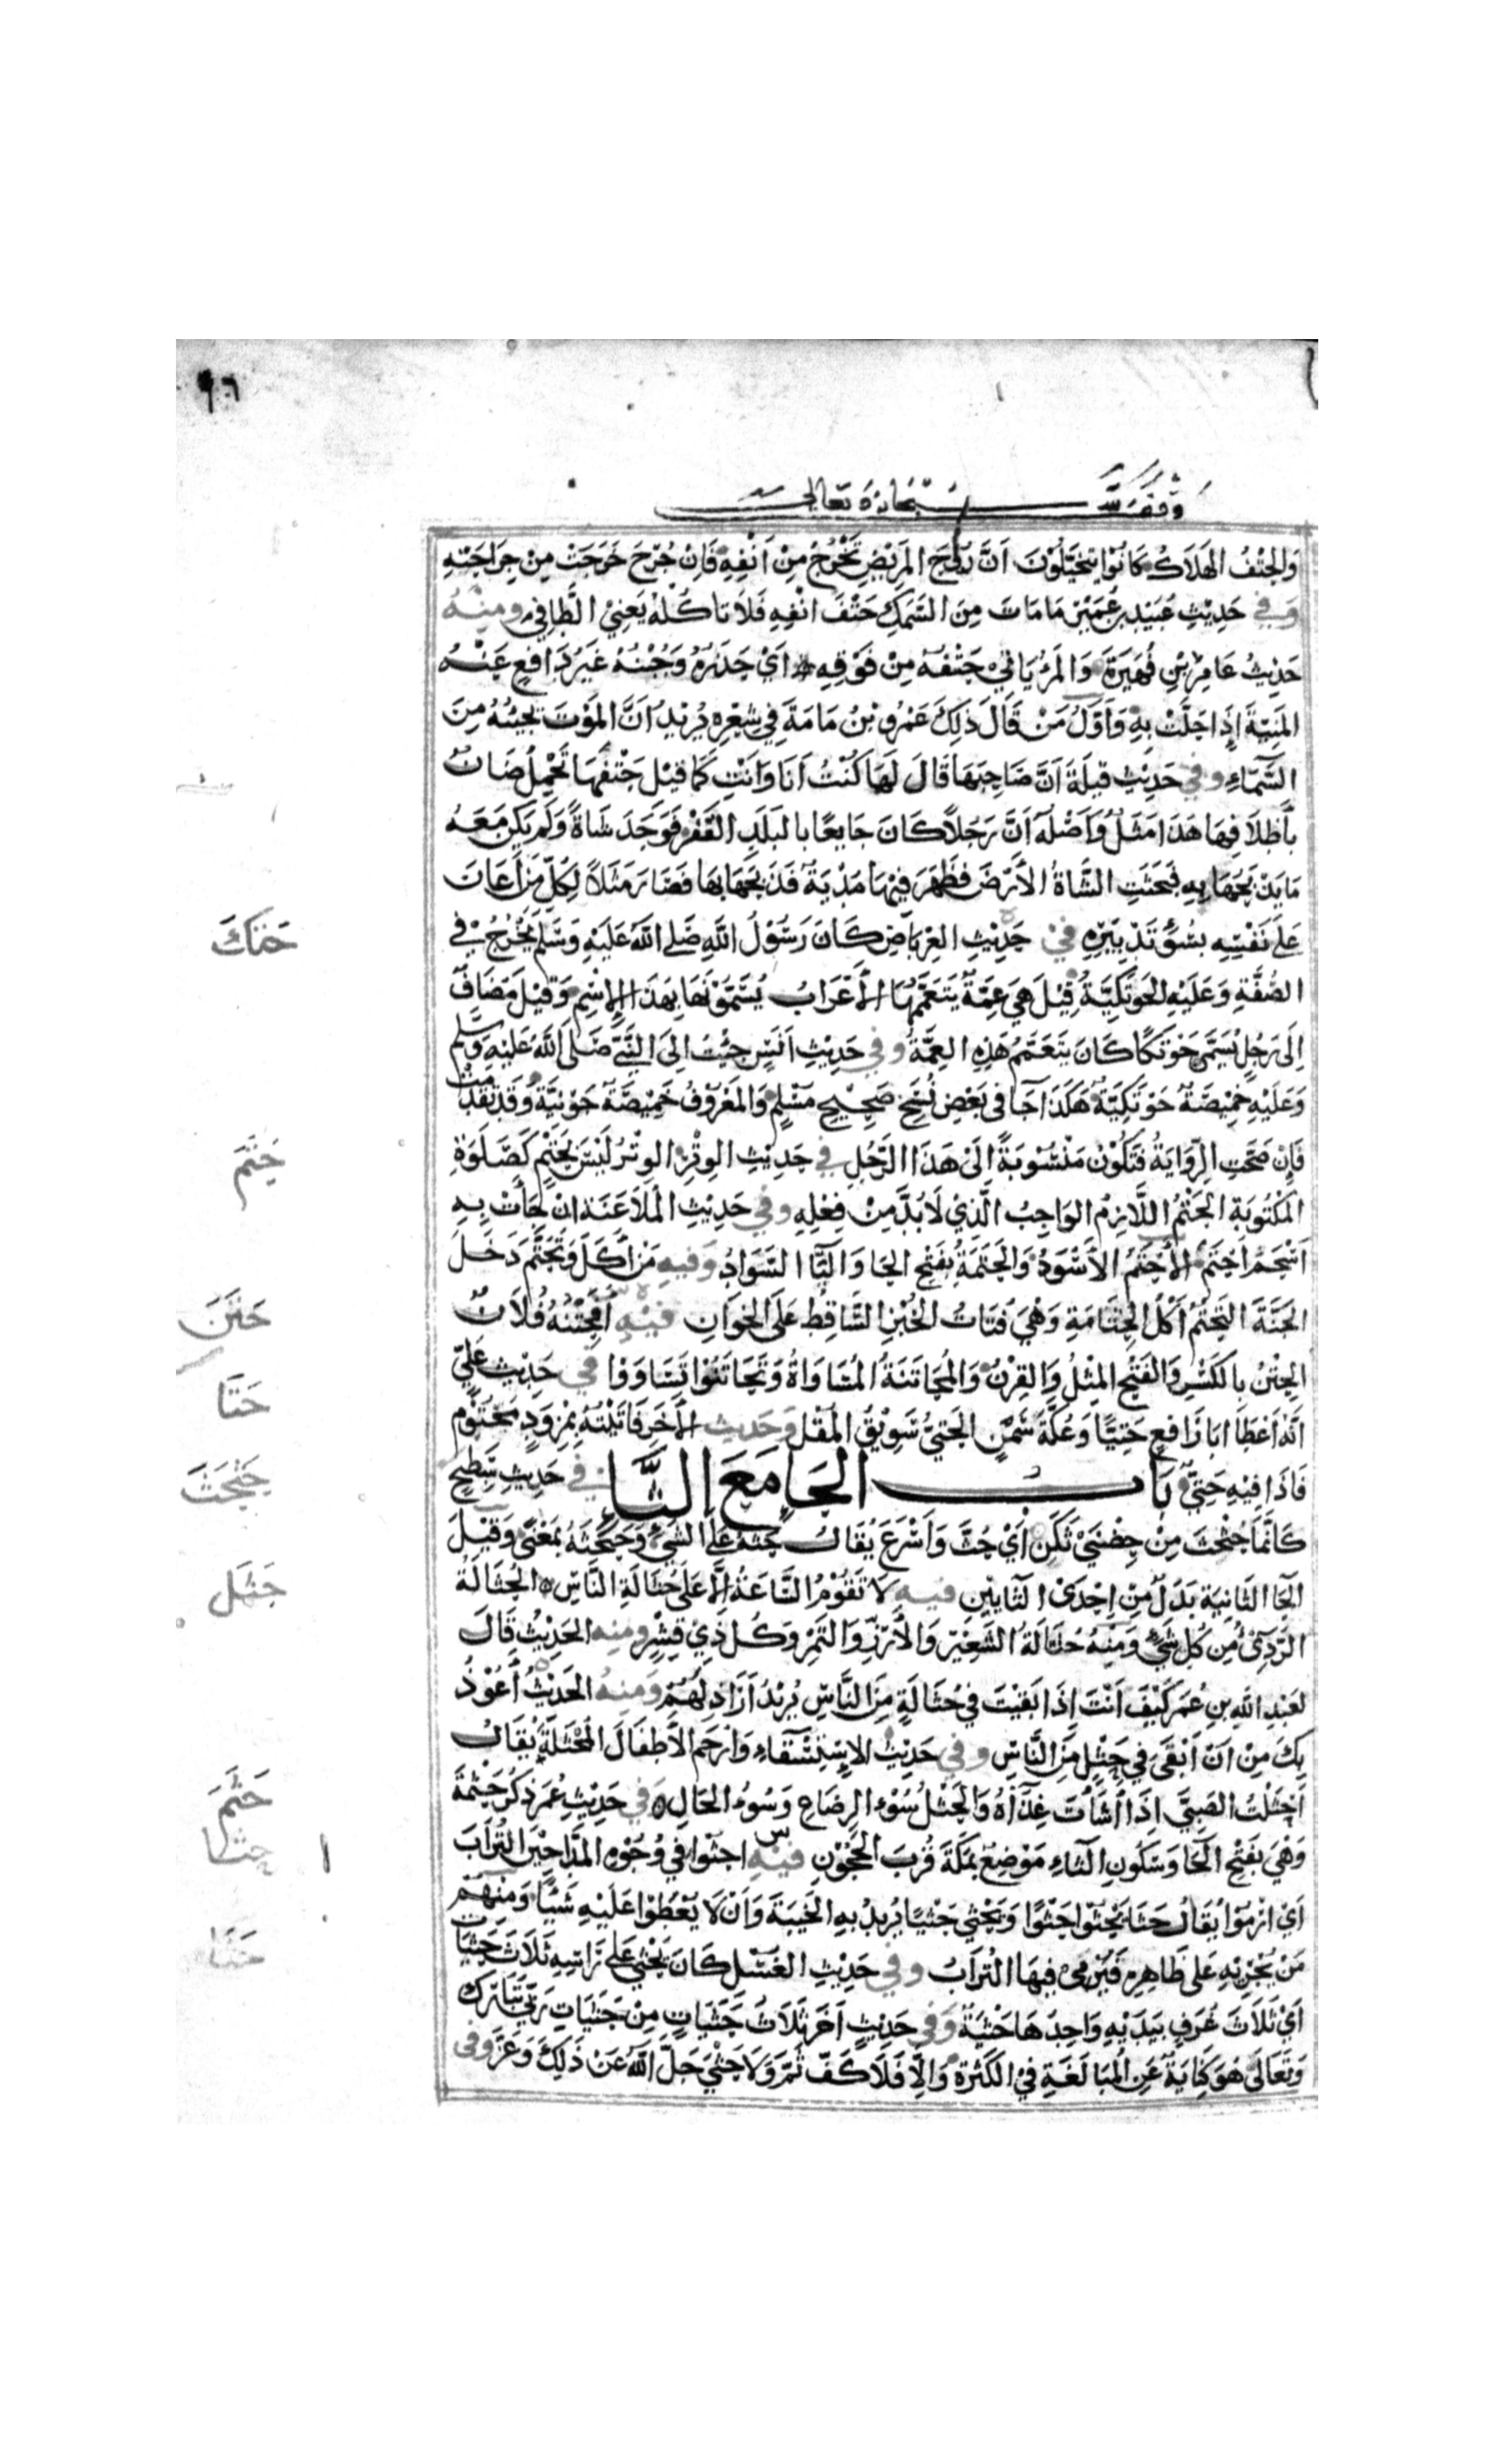 ٩٦
وقف لله سبحانه وتعالى
وَالحَتْفُ الهَلَاكُ كَانُوا يَتَخَيَّلُوْنَ اَنَّ رُوْحَ المَرِيْضِ تَخْرُجُ مِنْ اَنْفِهِ فَاِنْ جُرِحَ خَرَجَتْ مِنْ جِرَاحَتِهِ
وَفِي حَدِيْثِ عُبَيْدِ بْنِ عُمَيْرٍ مَا مَاتَ مِنَ السَّمَكِ حَتْفَ انْفِهِ فَلَا تَاكُلْهُ يَعْنِيْ الطَّافِي وَمِنْهُ
حَدِيْثُ عَامِرِ بْنِ فُهَيْرَةَ وَالمَرْءُ يَاتِيْ حَتْفُهُ مِنْ فَوْقِهِ اَيْ حَذَرُهُ وَجُبْنُهُ غَيْرُ دَافِعٍ عَنْهُ
المَنِيَّةَ إِذَا حَلَّتْ بِهِ وَاَوَّلُ مَنْ قَالَ ذَلِكَ عَمْرُو بْنُ مَامَةَ فِي شِعْرِهِ يُرِيْدُ اَنَّ المَوْتَ يَجِيْئُهُ مِنَ
السَّمَاءِ وفي حَدِيْثِ قيلَةَ اَنَّ صَاحِبَهَا قَالَ لَهَا كُنْتُ اَنَا وَاَنْتِ كَمَا قِيْلَ حَتْفَهَا تَحْمِلُ ضَانٌ
بِأَظْلَافِهَا هَذَا مَثَلٌ وَاَصْلُهُ اَنَّ رَجُلًا كَانَ جَايعًا بالبَلَدِ القَفْرِ فَوَجَدَ شَاةً وَلَمْ يَكُنْ مَعَهُ
مَا يَذْبَحُهَا بِهِ فَبَحَثَتِ الشَّاةُ الأَرْضَ فَظَهَرَ فِيْهَا مُدْيَةٌ فَذَبَحَهَا بِهَا فَصَارَ مَثَلًا لِكُلِّ مَنْ أَعَانَ
عَلَى نَفْسِهِ بِسُوْءِ تَدْبِيْرِهِ فِيْ حَدِيْثِ العِرْبَاضِ كَانَ رَسُوْلُ اللهِ صَلَّى اللهُ عَلَيْهِ وَسَلَّمَ يَخْرُجُ فِي
الصُّفَّةِ وَعَلَيْهِ الحَوْتَكِيَّةُ قِيْلَ هِيَ عِمَّةٌ يَتَعَمَّمُهَا الأَعْرَابُ يُسَمُّوْنَهَا بِهَذَا الإِسْمِ وَقِيْلَ مُضَافٌ
اِلَى رَجُلٍ يُسَمَّى حَوْتَكًا كَانَ يَتَعَمَّمُ هَذِهِ العِمَّةَ وفي حَدِيْثِ اَنَسٍ جِئْتُ اِلَى النَّبِيِّ صَلَّى اللهُ عَلَيْهِ وَسَلَّم
وَعَلَيْهِ خَمِيْصَةٌ حَوْتَكِيَّةٌ هَكَذَا جَا فِي بَعْضِ نُسَخِ صَحِيْحِ مُسْلِمٍ وَالمَعْرُوْفُ خَمِيْصَةٌ جَوْنِيَّةٌ وَقَدْ تَقَدَّمَتْ
فَاِنْ صَحَّتِ الرِّوَايَةُ فَتَكُوْن مَنْسُوْبَةً اِلَى هَذَا الرَّجُلِ في حَدِيْثِ الوِتْرِ الوِتْرُ لَيْسَ بِحَتْمٍ كَصَلَوةِ
المَكْتُوبَةِ الحَتْمُ اللَّازِمُ الوَاجِبُ الَّذِيْ لَا بُدَّ مِنْ فِعْلِهِ وفي حَدِيْثِ المُلَاعَنَة اِنْ جَاءَتْ بِهِ
اَسْحَمَ أَحْتَمَ الأَحْتَمُ الأَسْوَدُ وَالحَتَمَةُ بِفَتْحِ الحَا وَالتَّا السَّوَادُ وَفيهِ مَنْ أَكَلَ وَتَحَتَّمَ دَخَلَ
الجَنَّةَ التَّحَتُّمُ أَكْلُ الحُتَامَةِ وَهْيَ فُتَاتُ الخُبْزِ السَّاقِطُ عَلَى الخِوَانِ فيْهِ أَفَحِتْنُهُ فُلَانٌ
الحِتْنُ بِالكَسْرِ وَالفَتْحِ المِثْلُ وَالقِرْنُ وَالمُحَاتَنَةُ المُسَاوَاةُ وَتَحَاتَنُوْا تَسَاوَوْا في حَدِيْثِ عَلِيٍّ
اَنَّهُ اَعْطَا اَبَا رَافِعٍ حَتِيًّا وَعُكَّةَ سَمْنٍ الحَتِيُّ سَوِيْقُ المُقْلِ وَحَدِيث الأَخَر فَاتَيْتُهُ بِمِزْوَدٍ مَخْتُوْمٍ
فَاذَا فِيْهِ حَتِيٌّ بَابُ الحَا مَعَ الثَّاءِ في حَدِيْثِ سَطِيْحٍ
كَأَنَّمَا حُثْحِثَ مِنْ حِضْنَيْ ثَكَنْ اَيْ حُثَّ وَاَسْرَعَ يُقَالُ حَثَّهُ عَلَى الشَّيْءِ وَحَثْحَثَهُ بِمَعْنًى وَقِيْلَ
الحَا الثَّانِيَة بَدَلٌ مِنْ اِحْدَى الثَّايَيْنِ فيهِ لَا تَقُوْمُ السَّاعَةُ اِلَّا عَلَى حُثَالَةِ النَّاسِ الحُثَالَةُ
الرَّدِيْءُ مِنْ كُلِّ شَيْءٍ وَمِنْهُ حُثَالَةُ الشَّعِيْرِ وَالأَرُزِّ وَالتَّمْرِ وَكُلِّ ذِي قِشْرٍ وَمِنْهُ الحَدِيْثُ قَالَ
لِعَبْدِ اللهِ بنِ عُمَرَ كَيْفَ اَنْتَ إِذَا بَقِيْتَ فِي حُثَالَةٍ مِنَ النَّاسِ يُرِيْدُ اَرَاذِلَهُمْ وَمِنْهُ الحَدِيْثُ أَعُوْذُ
بِكَ مِنْ اَنْ اَبْقَى فِي حَثْلٍ مِنَ النَّاسِ وفي حَدِيْثِ الاِسْتِسْقَاءِ وَارْحَمِ الأَطْفَالَ المُحْثَلَةَ يُقَالُ
اَحْثَلْتُ الصَبِيَّ اِذَا اَسَأْتَ غِذَاءَهُ وَالحَثْلُ سُوْءُ الرِضَاعِ وَسُوْءُ الحَالِ وَفي حَدِيْثِ عُمَرَ ذِكْرُ حَثْمَةَ
وَهْيَ بِفَتْحِ الحَا وَسُكُونِ الثَاءِ مَوْضِعٌ بِمَكَّةَ قُرْبَ الحَجُوْنِ فيْهِ احْثُوا فِي وُجُوْهِ المَدَّاحِيْنَ التُّرَابَ
اَيْ ارْمُوْا يُقَالُ حَثَا يَحْثُوْا حَثْوًا وَيَحْثِي حَثْيًا يُرِيْدُ بِهِ الخَيْبَةَ وَاَنْ لَا يُعْطَوْا عَلَيْهِ شَيْئًا وَمِنْهُمْ
مَنْ يُجْرِيْهِ عَلَى ظَاهِرِهِ فَيَرْمِي فِيهَا التُّرَابَ وفي حَدِيْثِ الغُسْلِ كَانَ يَحْثِي عَلَى رَاسِهِ ثَلَاثَ حَثَيَاتٍ
اَيْ ثَلَاثَ غُرَفٍ بِيَدَيْهِ وَاحِدَهَا حَثْيَةٌ وَفي حَدِيْثٍ اَخَر ثَلَاثَ حَثَيَاتٍ مِنْ حَثَيَاتِ رَبِّي تَبَارَكَ
وَتَعَالَى هُوَ كِنَايَةٌ عَنِ المُبَالَغَةِ فِي الكَثْرَةِ وَاِلَّا فَلَا كَفَّ ثَمَّ وَلَا حَثْيَ جَلَّ اللهُ عَنْ ذَلِكَ وَعَزَّ وفي
حَتَكَ
حَتَمَ
حَتَنَ
حَتَا
حَثْحَثَ
حَثَل
حَثَمَ
حثا
حَثَا